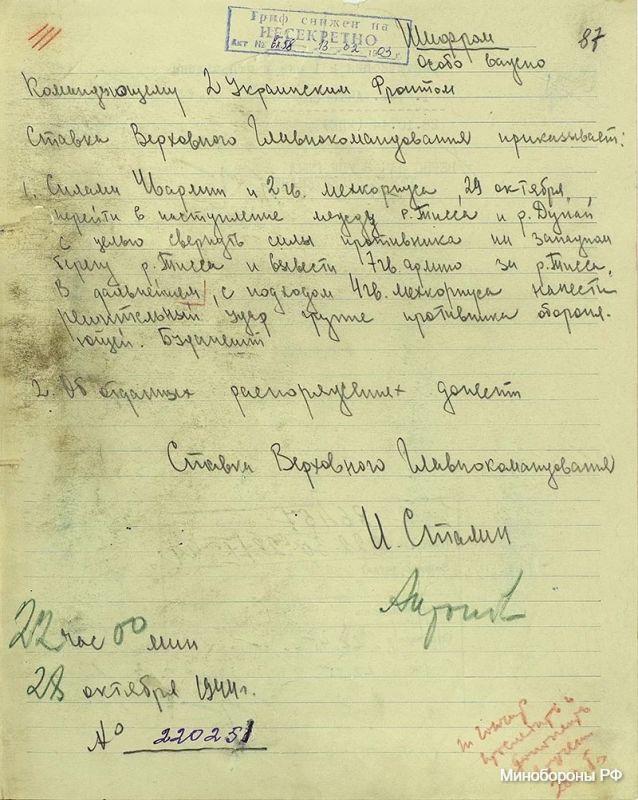 Гриф снижен на
НЕСЕКРЕТНО
Акт №
Шифром
87
Особо важно
Командующему 2 Украинским Фронтом
Ставка Верховного Главнокомандования приказывает:
1. Силами 46 армии и 2 гв. мехкорпуса 29 октября
перейти в наступление между р. Тисса и р. Дунай
с целью свернуть силы противника на западном
берегу р. Тисса и вывести 7 гв. армию за р. Тисса,
в дальнейшем, с подходом 4 гв. мехкорпуса нанести
решительный удар группе противника обороня-
ющей Будапешт
2. Об отданных распоряжениях донести
Ставка Верховного Главнокомандования
И. Сталин
Антонов
22 час 00 мин
28 октября 1944 г.
№ 220251
Минобороны РФ